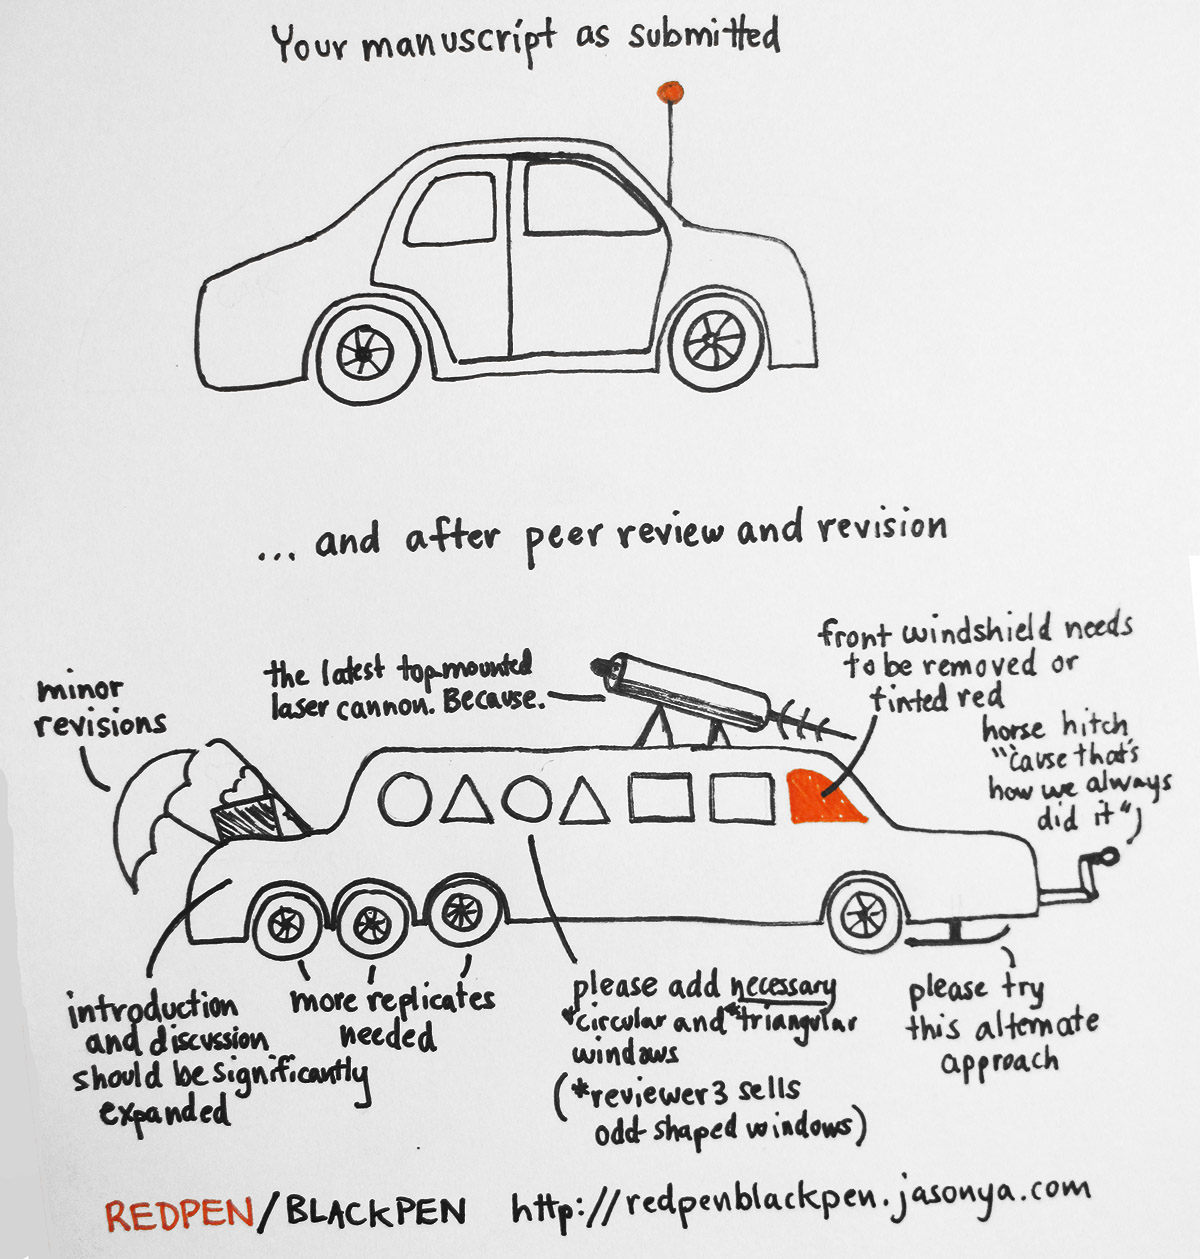 Your manuscript as submitted
... and after peer review and revision
minor
revisions
the latest top-mounted
laser cannon. Because.
front windshield needs
to be removed or
tinted red
horse hitch
"'cause that's
how we always
did it"
introduction
and discussion
should be significantly
expanded
more replicates
needed
please add necessary
*circular and *triangular
windows
(*reviewer 3 sells
odd shaped windows)
please try
this alternate
approach
REDPEN/BLACKPEN http://redpenblackpen.jasonya.com